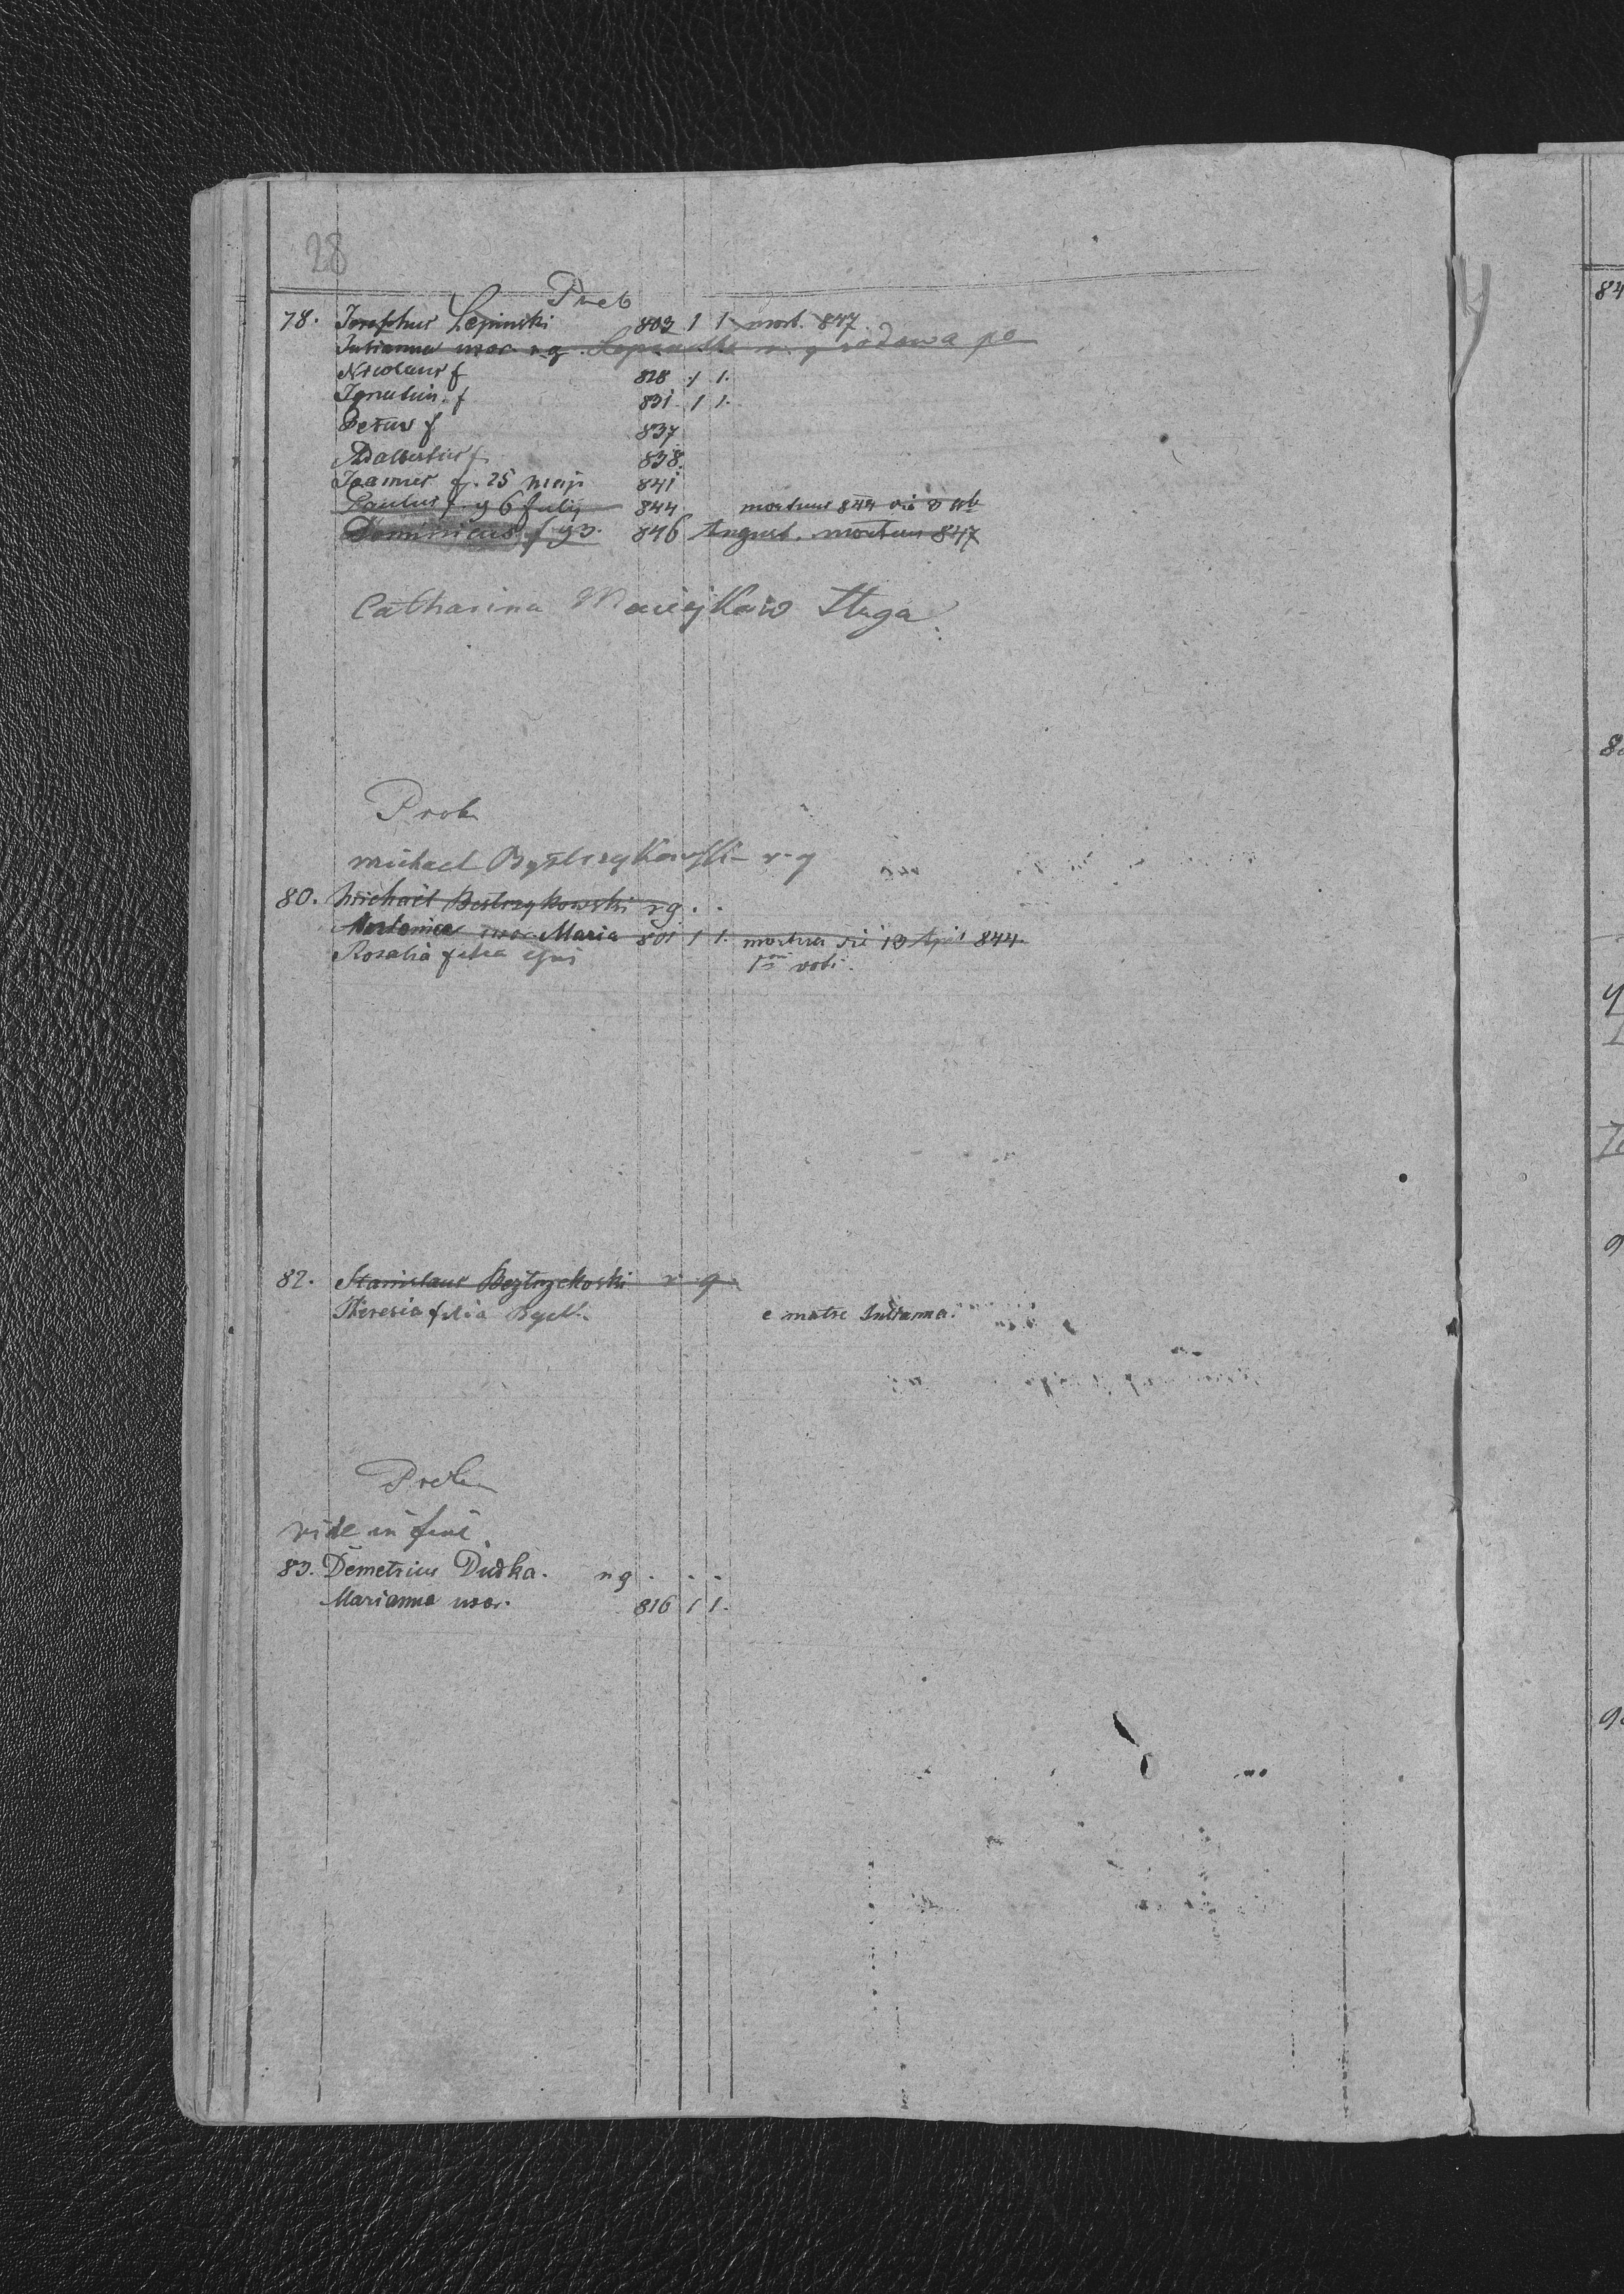 28
78. Josephus Lepinski 803 1 1 mort. 847
Julianna uxor r. g. r. g
Nicolaus f 828 1 1.
Ignatius. f 831. 1 1.
Petrus f 837
Adalbertus f 838.
Joannes f. 25 maji 841
Paulus f. g 6 Julij 844 mortuus 844 die
Dominicus f g 3. 846 August. mortuus 847
Catharina Maciejkow Sługa
Prob
michael Bystrzykowski r-g
80. Michael Bestrzykowski rg . .
uxor Maria 801 1 1. mortua die 10 April 844.
Rosalia filia ejus 1mi voti.
82. Stanislaus Beztrzekoski r. g.
Theresia filia e matre Julianna.
Prob
vide in fine
83. Demetrius Dudka. rg . . .
Marianna uxor. 816 1 1.
84